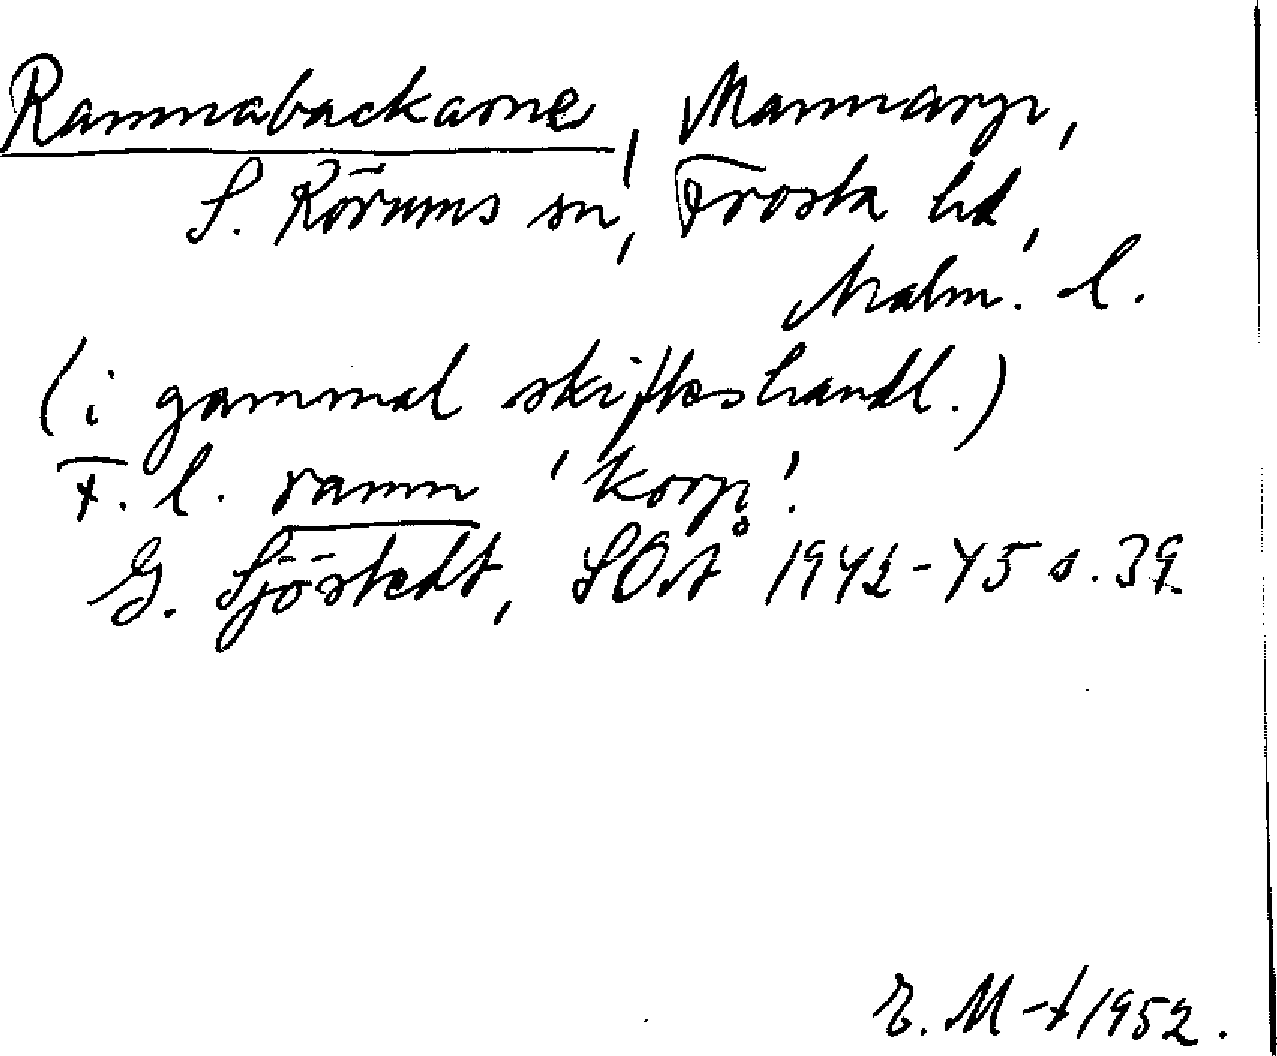 Ramnabackarne, Mannarp,
S. Rörums sn, Frosta hd,
Malm. l.
(i gammal skifteshandl.)
F. l. ramn 'korp'.
G. Sjöstedt, SOÅ 1942-45 s. 39
E. M-t 1952.